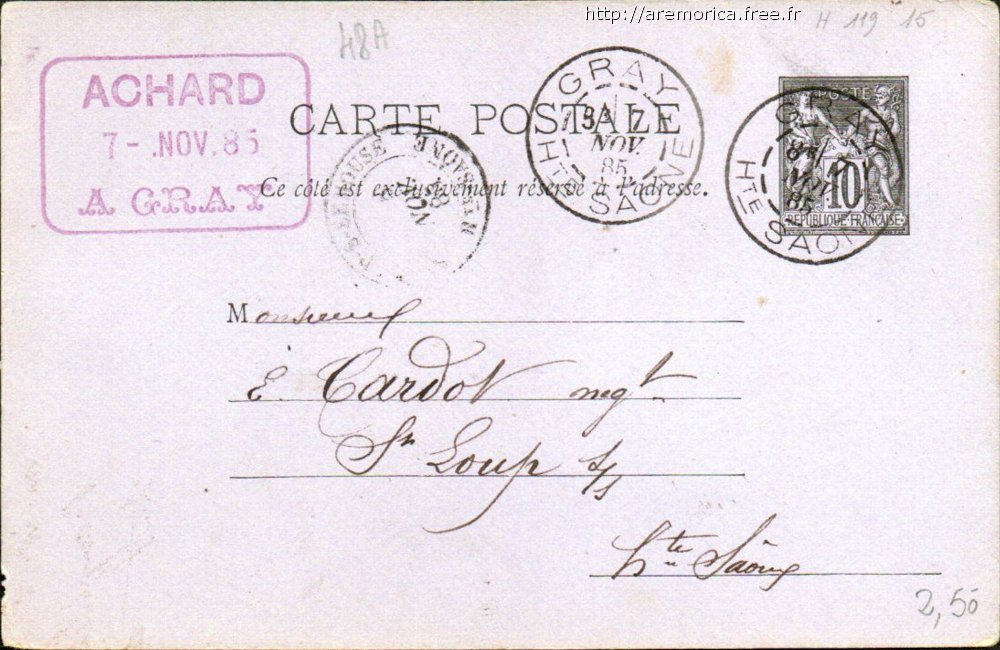 http://aremorica.free.fr
48A
H 119 15
ACHARD
7 - .NOV. 85
A GRAY
CARTE POSTALE
GRAY
7
NOV.
85
HTE SAONE
GRAY
85
HTE SAONE
POSTE
10
RÉPUBLIQUE FRANÇAISE
Ce côté est exclusivement réservé à l'adresse.
NOV
HTE SAONE
Monsieur
E. Cardot negt
St Loup s/s
hte Saône
2,50